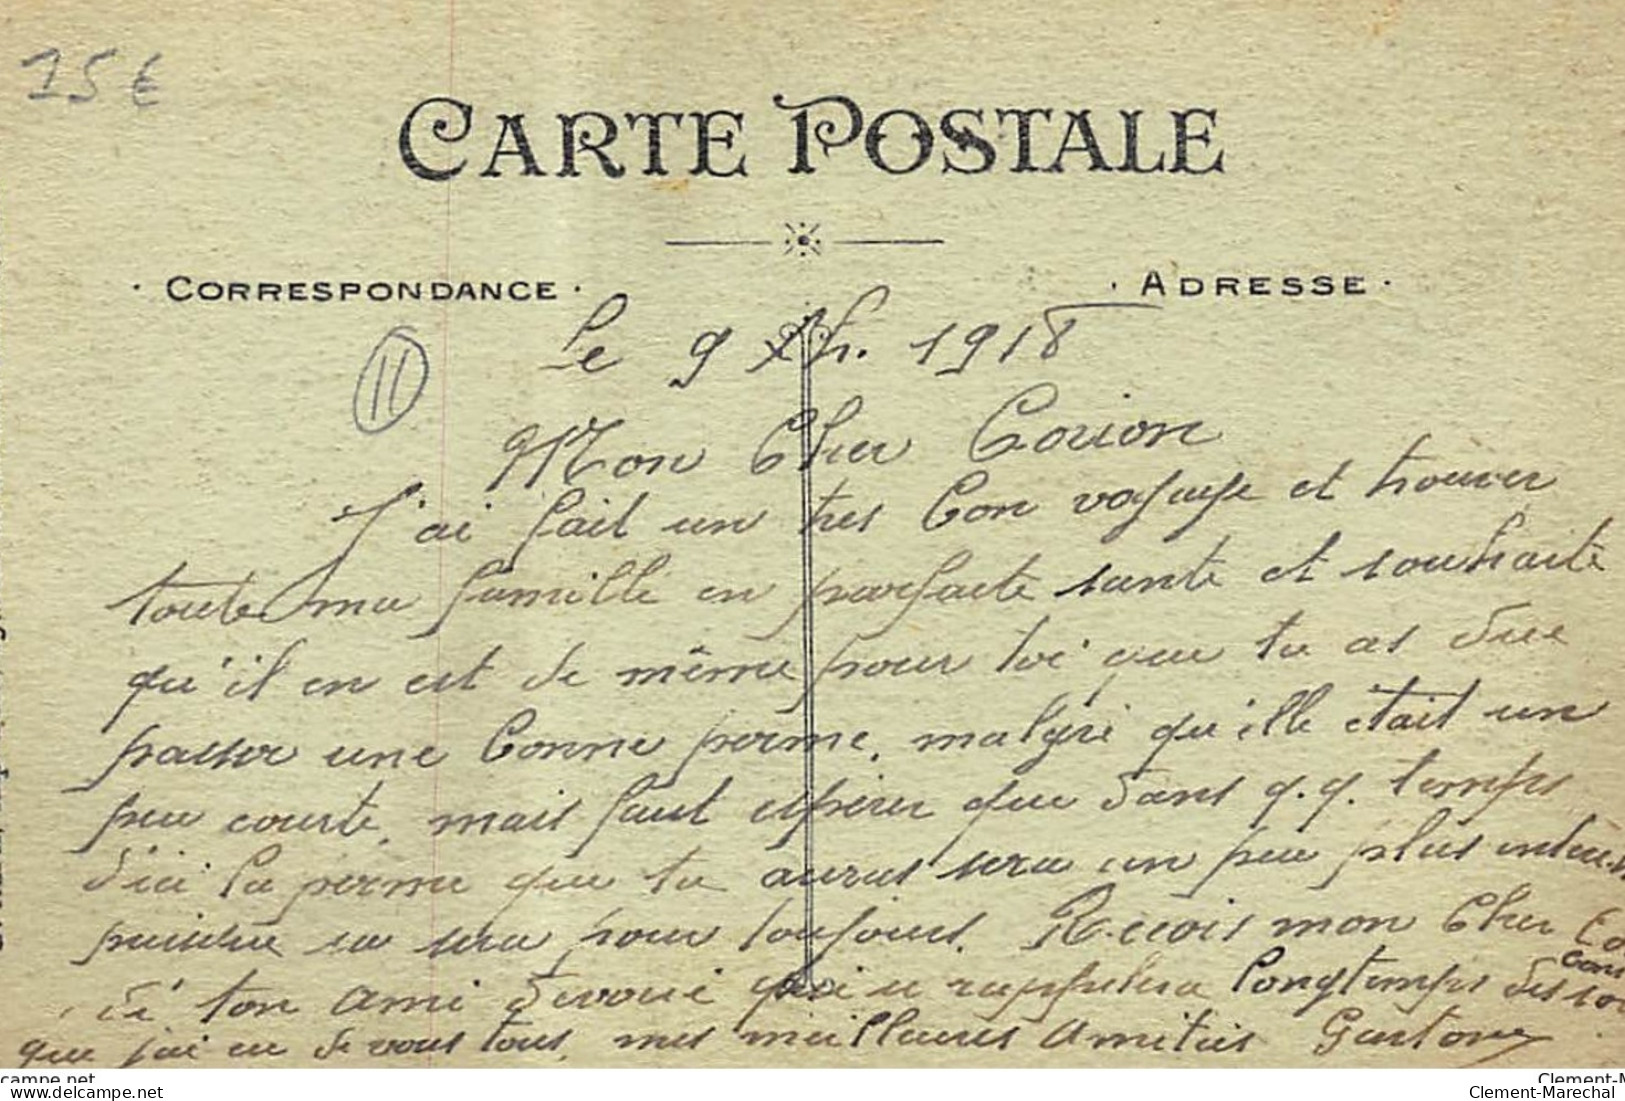 15€
CARTE POSTALE
· CORRESPONDANCE ·
· ADRESSE ·
11
Le 9 Xbr. 1918
Mon Cher Corion
J'ai fait un tres bon voyage et trouver
toute ma famille en parfaite santé et souhaite
qu'il en est de même pour toi que tu as due
passer une bonne perme, malgré qu'elle était un
peu courte, mais faut espérer que dans q.q. temps
d'ici la perme que tu auras sera un peu plus
puisque sa sera pour toujours. Recois mon Cher Co
de ton ami devoué qui se rappelera longtemps des bons
que j'ai eu de vous tous, mes meilleures amitiés Gaston
Clement-Marechal